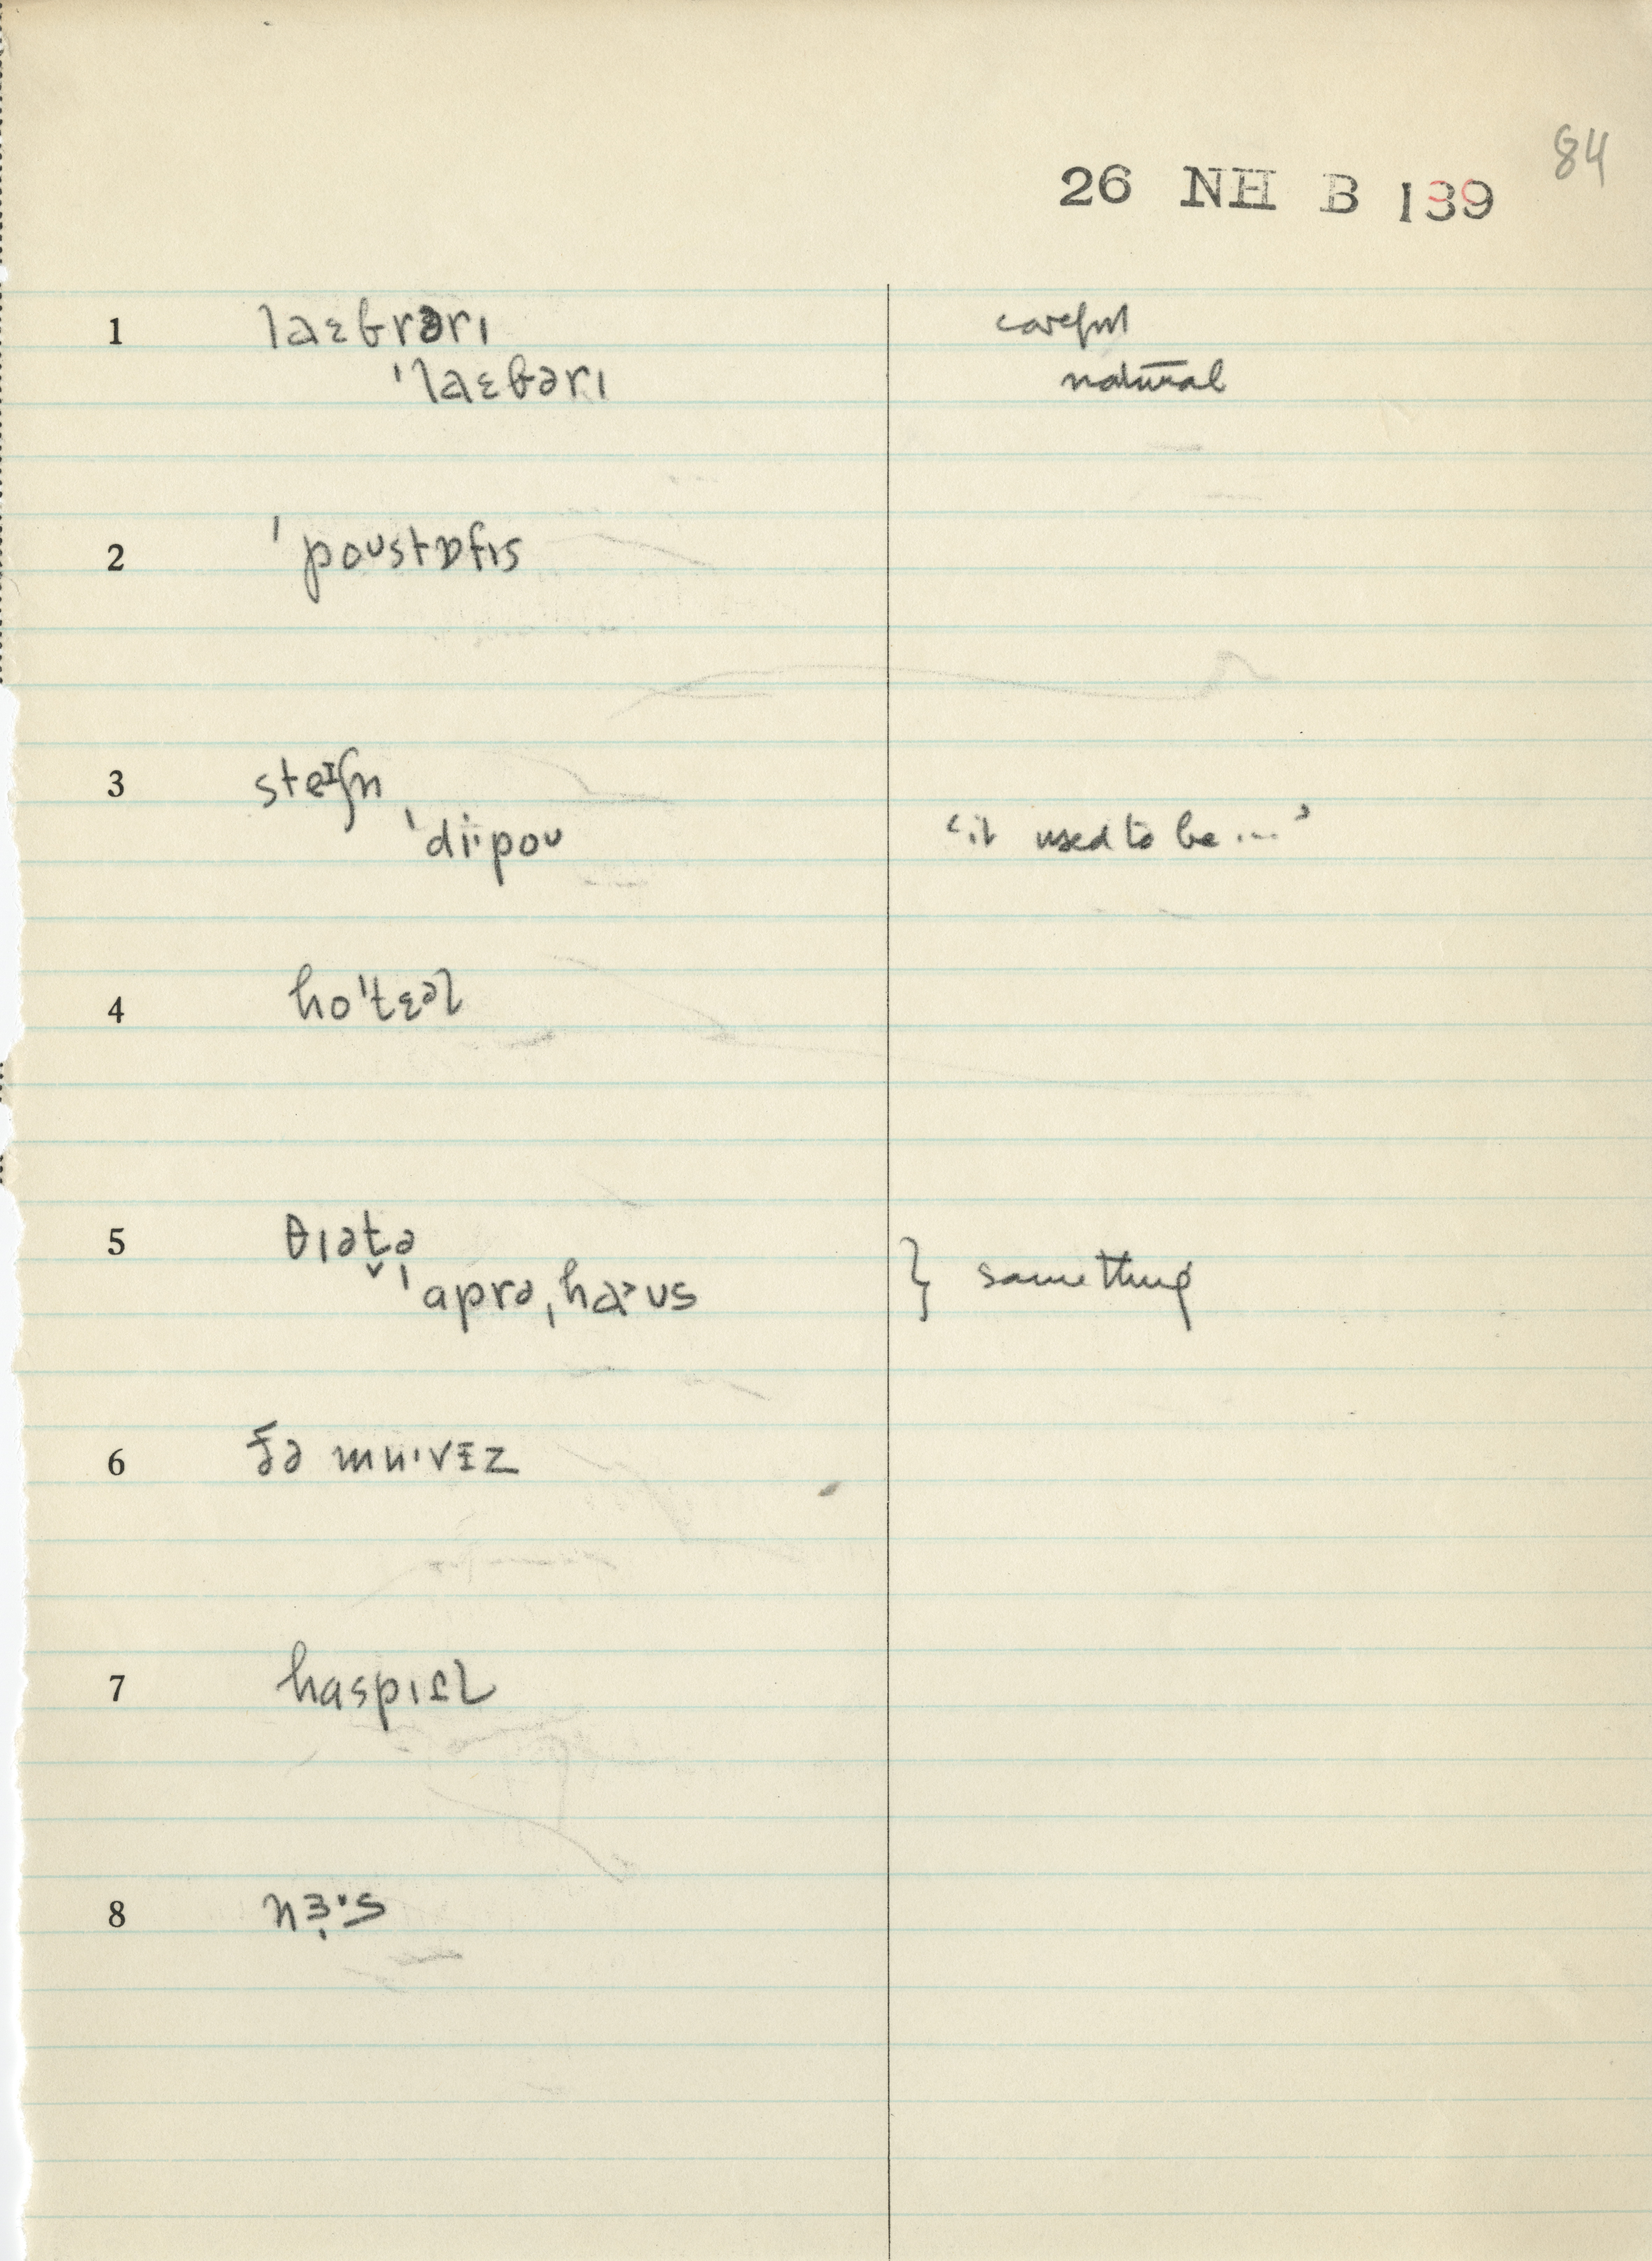 84
26 NH B 139
1 laɛbrəri careful
ˈlaɛbəri natural
2 ˈpoᴜstɒfɪs
3 steɪʃn
ˈdi·poᴜ ‘it used to be ...’
4 hoˈtɛəl
5 θɪət̬ə
ˈaprəˌhaᴜs } something
6
7 haspɪɾl
8